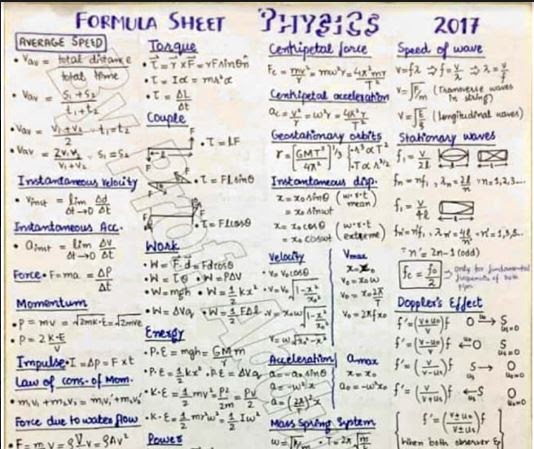 FORMULA SHEET PHYSICS 2017
AVERAGE SPEED
• Vav = total distance / total time
• Vav = S₁+S₂ / t₁+t₂
• Vav = V₁+V₂ / 2 , t₁=t₂
• Vav = 2V₁V₂ / V₁+V₂ , S₁=S₂
Instantaneous Velocity
• Vinst = lim Δt→0 Δd/Δt
Instantaneous Acc.
• ainst = lim Δt→0 Δv/Δt
Force • F=ma = ΔP/Δt
Momentum
• P = mv = √2mK·E = √2mVe
• P = 2K·E / V
Impulse • I = Δp = F×t
Law of cons. of Mom.
• m₁V₁+m₂V₂ = m₁V₁'+m₂V₂'
Force due to water flow
• F = m/t V = ρ V/t V = ρAv²
Torque
• τ = r×F = rFsinθn̂
• τ = Iα = mr²α
• τ = ΔL/Δt
Couple
• τ = LF
• τ = FLsinθ
• τ = FLcosθ
Work
• W = F·d = Fdcosθ
• W = τθ • W = PΔV
• W = mgh • W = ½kx²
• W = ΔVq • W = ½FΔl
Energy
• P.E = mgh = GMm/r
• P.E = ½kx² • P.E = ΔVq
• K.E = ½mv² = P²/2m = PV/2
• K.E = ½mr²ω² = ½Iω²
Power
Centripetal force
Fc = mv²/r = mω²r = 4π²mr/T²
Centripetal acceleration
ac = v²/r = ω²r = 4π²r/T²
Geostationary orbits
r = [GMT²/4π²]^1/3 {∴ r³ ∝ T² ∴ T ∝ r^3/2
Instantaneous disp.
x = x₀ sinθ (w.r.t mean)
x = x₀ sinωt
x = x₀ cosθ (w.r.t extreme)
x = x₀ cosωt
Velocity
• v = v₀ cosθ
• v = v₀ √1-x²/x₀²
• v = x₀ω √1-x²/x₀²
v = ω√x₀²-x²
Vmax
x = x₀
V₀ = x₀ω
V₀ = x₀ 2π/T
V₀ = 2πfx₀
Acceleration
a = -a₀ sinθ
a = -ω²x
a = (2π/T)² x
amax
x = x₀
a₀ = -ω²x₀
Mass Spring System
ω = √k/m • T = 2π√m/k
Speed of wave
v = fλ ⇒ f = v/λ ⇒ λ = v/f
v = √F/m (Transverse waves in string)
v = √E/ρ (longitudinal waves)
Stationary waves
f₁ = v/2l
fn = nf₁ , λn = 2l/n ∵ n = 1,2,3...
f₁ = v/4l
fn' = n'f₁ , λn' = 4l/n' ∵ n' = 1,3,5...
∵ n' = 2n-1 (odd)
fc = fo/2 → only for fundamental frequencies of both pipes
Doppler's Effect
f' = (v+u₀/v) f
f' = (v-u₀/v) f
f' = (v/v-us) f
f' = (v/v+us) f
f' = (v±u₀/v±us) f
When both observer &